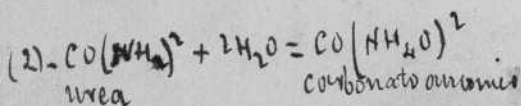 (2). CO(NH₂)² + 2H₂O = CO(NH₄O)²
urea carbonato amonico